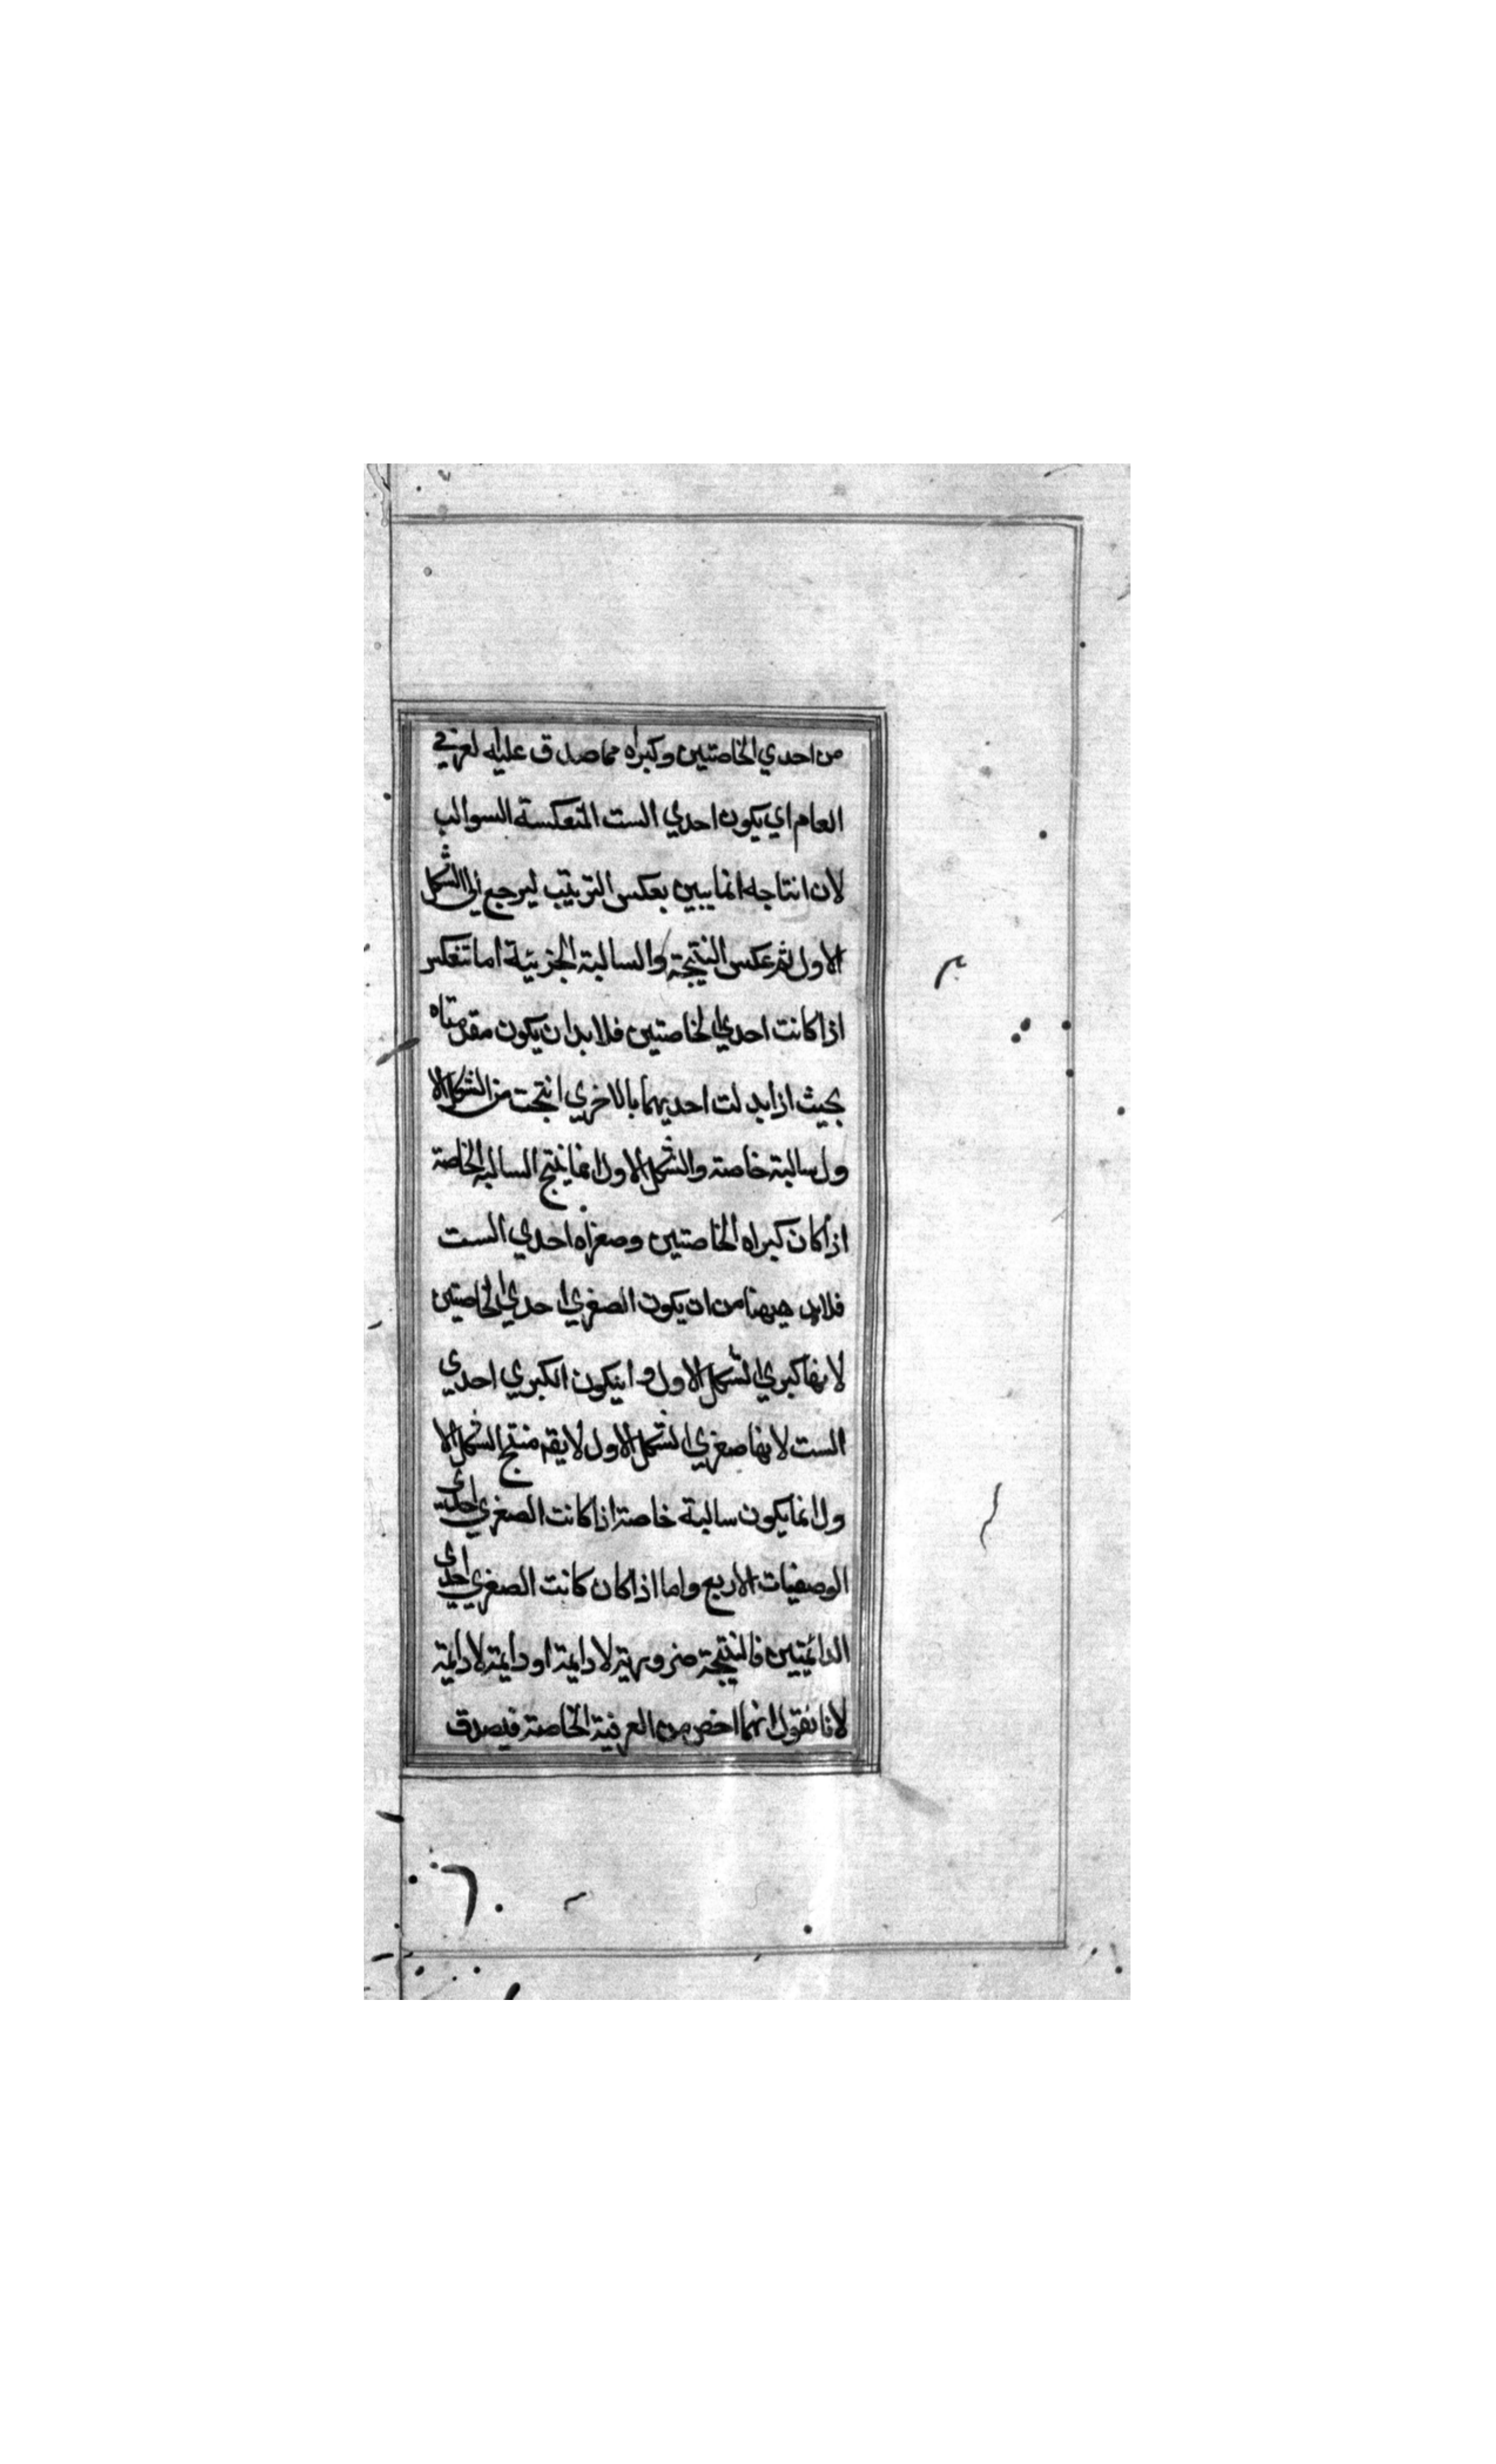 من احدي الخاصتين وكبراه مما صدق عليه لعرفي
العام اي يكون احدي الست المنعكسة السوالب
لان انتاجه انما يبين بعكس الترتيب ليرجع الي الشكل
الاول ثم عكس النتيجة والسالبة الجزيية اما تنعكس
اذا كانت احدي الخاصتين فلا بد ان يكون مقدمتاه
بحيث اذا بدلت احديهما بالاخري انتجت من الشكل الا
ول سالبة خاصة والشكل الاول انما ينتج السالبة الخاصة
اذا كان كبراه الخاصتين وصغراه احدي الست
فلا بد هيهنا من ان يكون الصغري احدي الخاصتين
لانها كبري الشكل الاول و ان يكون الكبري احدي
الست لانها صغري الشكل الاول لا يقه منتج الشكل الا
ول انما يكون سالبة خاصة اذا كانت الصغري احدي
الوصفيات الاربع واما اذا كان كانت الصغري احدي
الدائميتين فالنتيجة ضرورية لا دايمة او دايمة لا دايمة
لانا نقول انهما اخص من العرفية الخاصة فيصدق